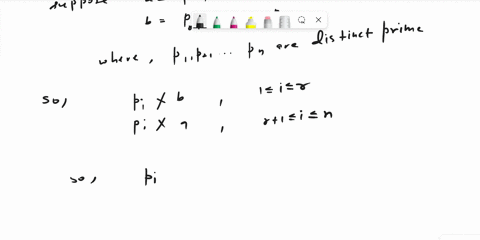 suppose
b = p
where, p₁, p₂, ... pₙ are distinct prime
so, pᵢ ∤ b , 1 ≤ i ≤ r
pᵢ ∤ a , r+1 ≤ i ≤ n
so, pᵢ